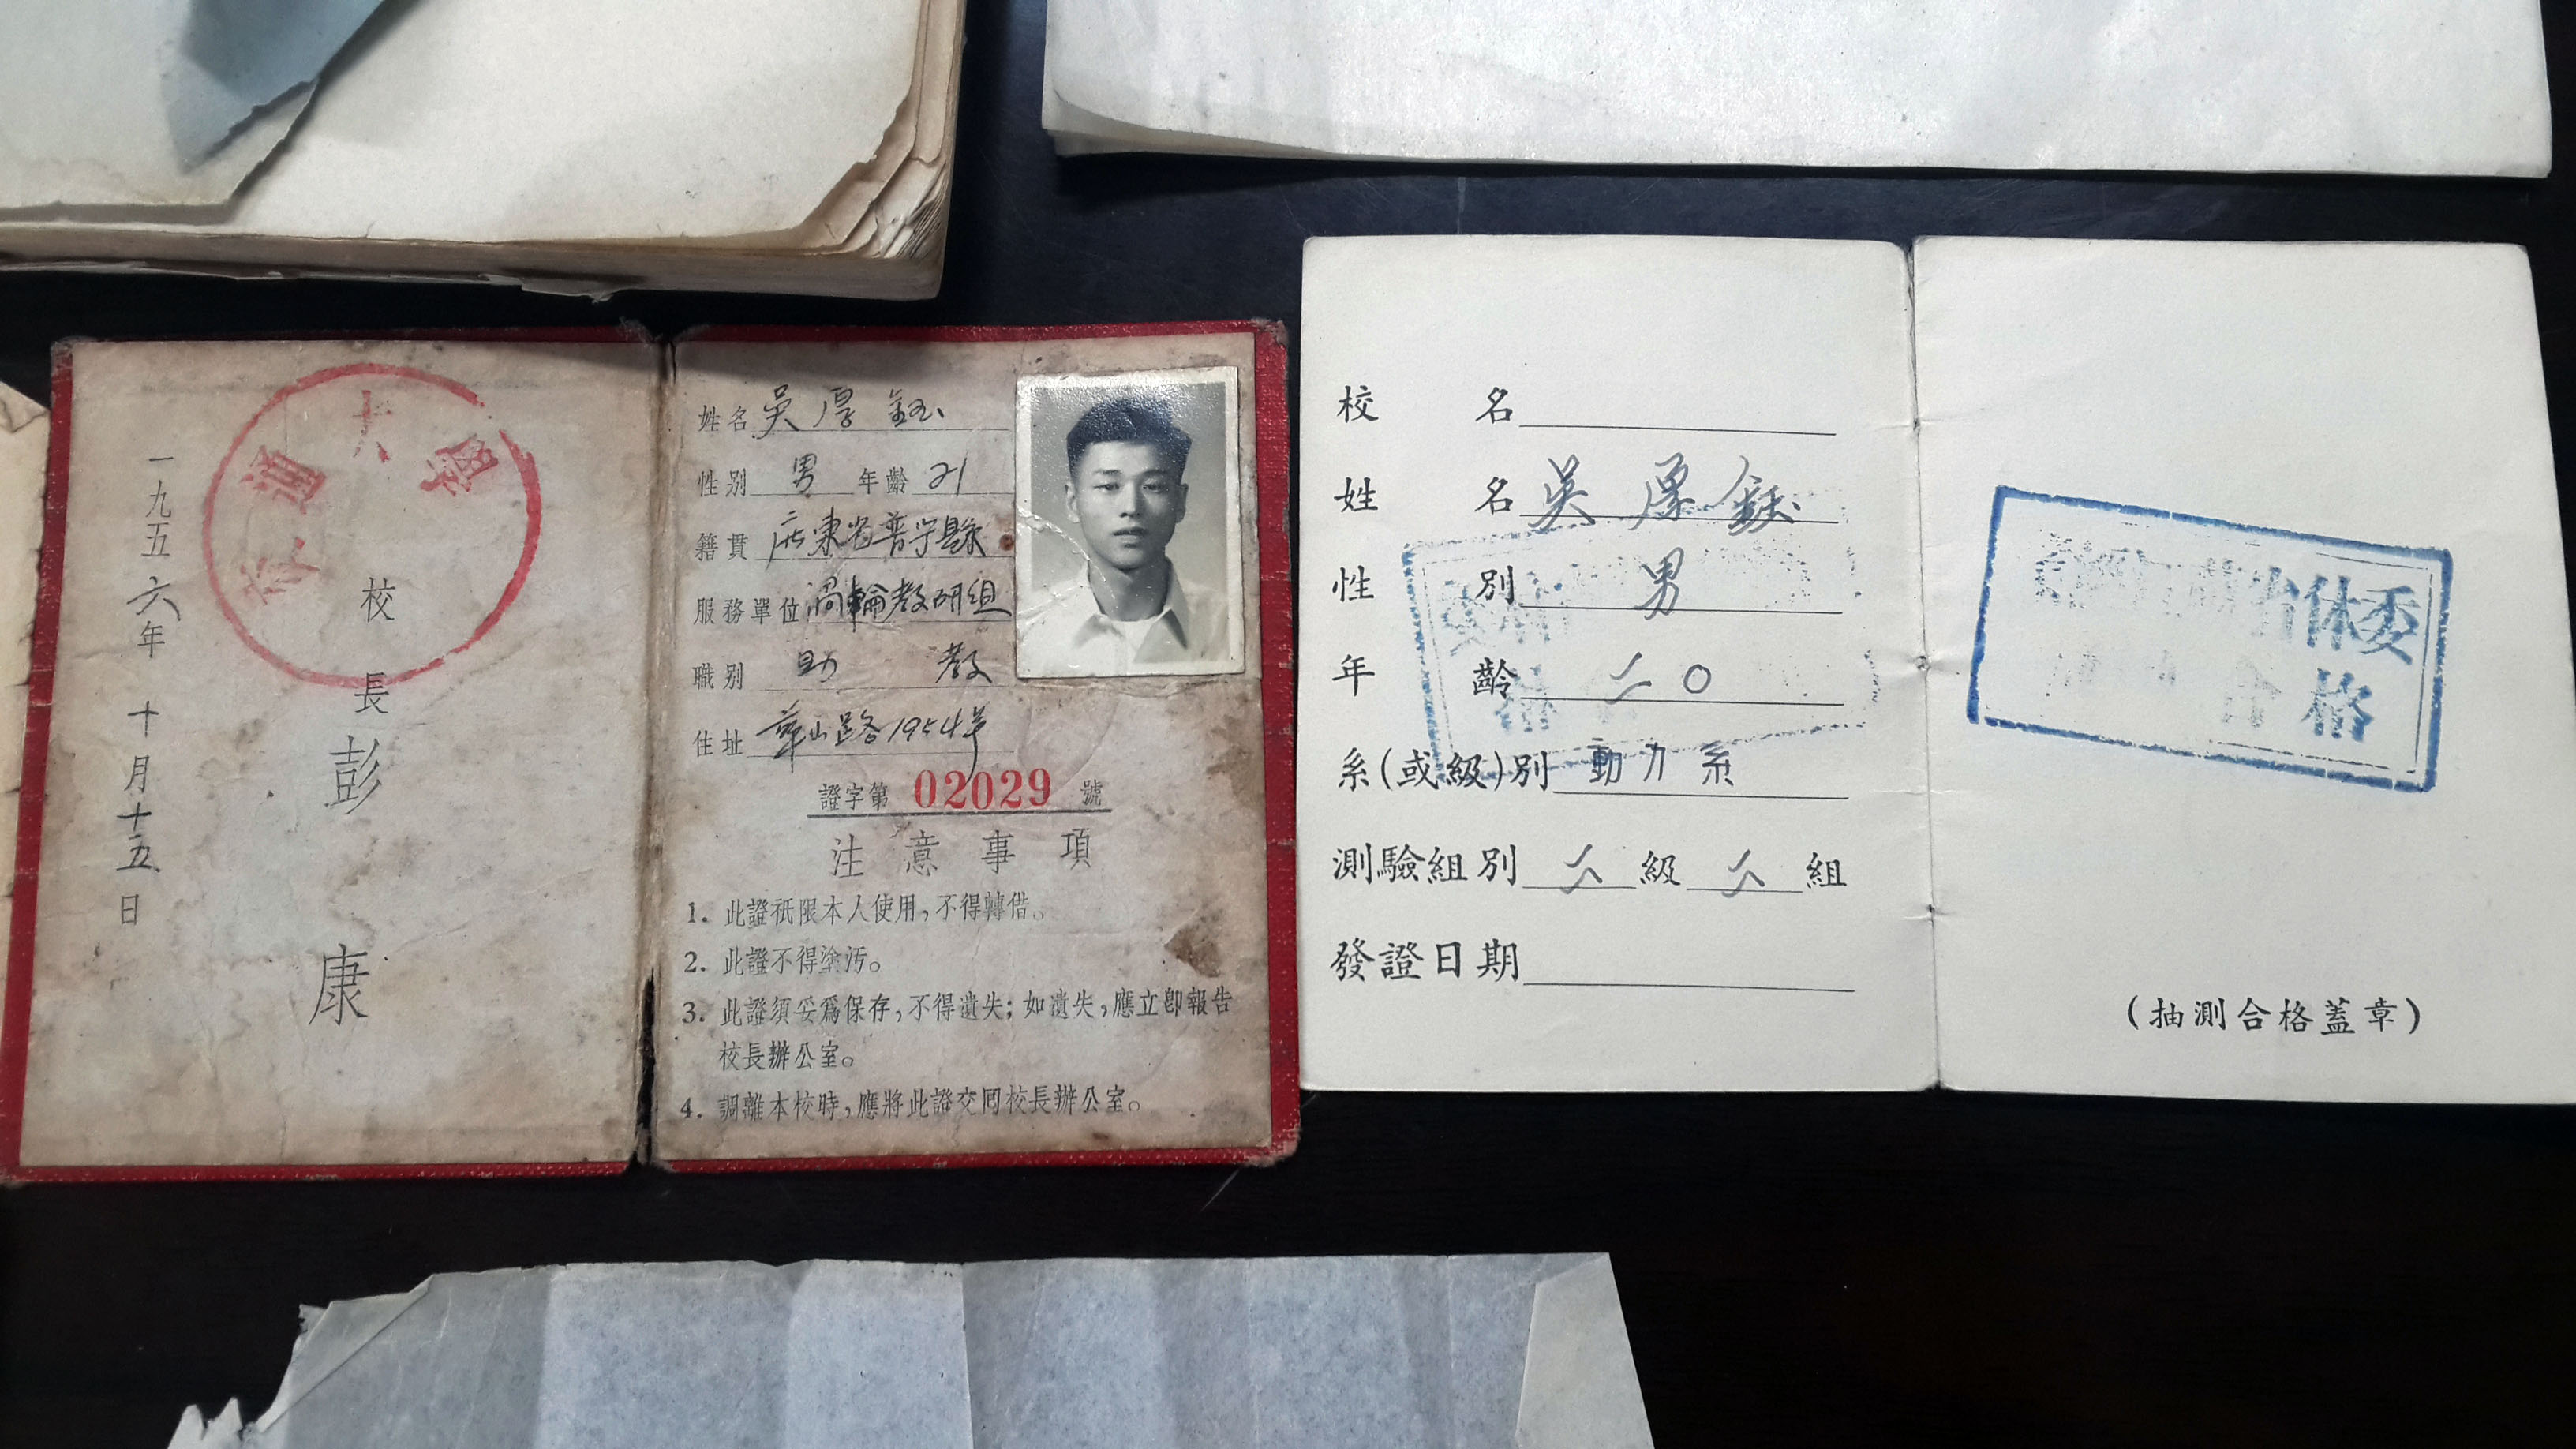 交通大學
一九五六年十月十五日
校長彭康
姓名 吳厚鈺
性别 男 年齡 21
籍貫 广東省普宁縣
服務單位 渦輪教研組
職别 助教
住址 華山路1954号
證字第 02029 號
注意事項
1. 此證祇限本人使用,不得轉借。
2. 此證不得塗汚。
3. 此證須妥爲保存,不得遺失;如遺失,應立卽報告
校長辦公室。
4. 調離本校時,應將此證交囘校長辦公室。
校名
姓名 吳厚鈺
性別 男
年齡 二〇
系(或級)別 動力系
測驗組別 二 級 二 組
發證日期
省体委
合格
(抽測合格蓋章)